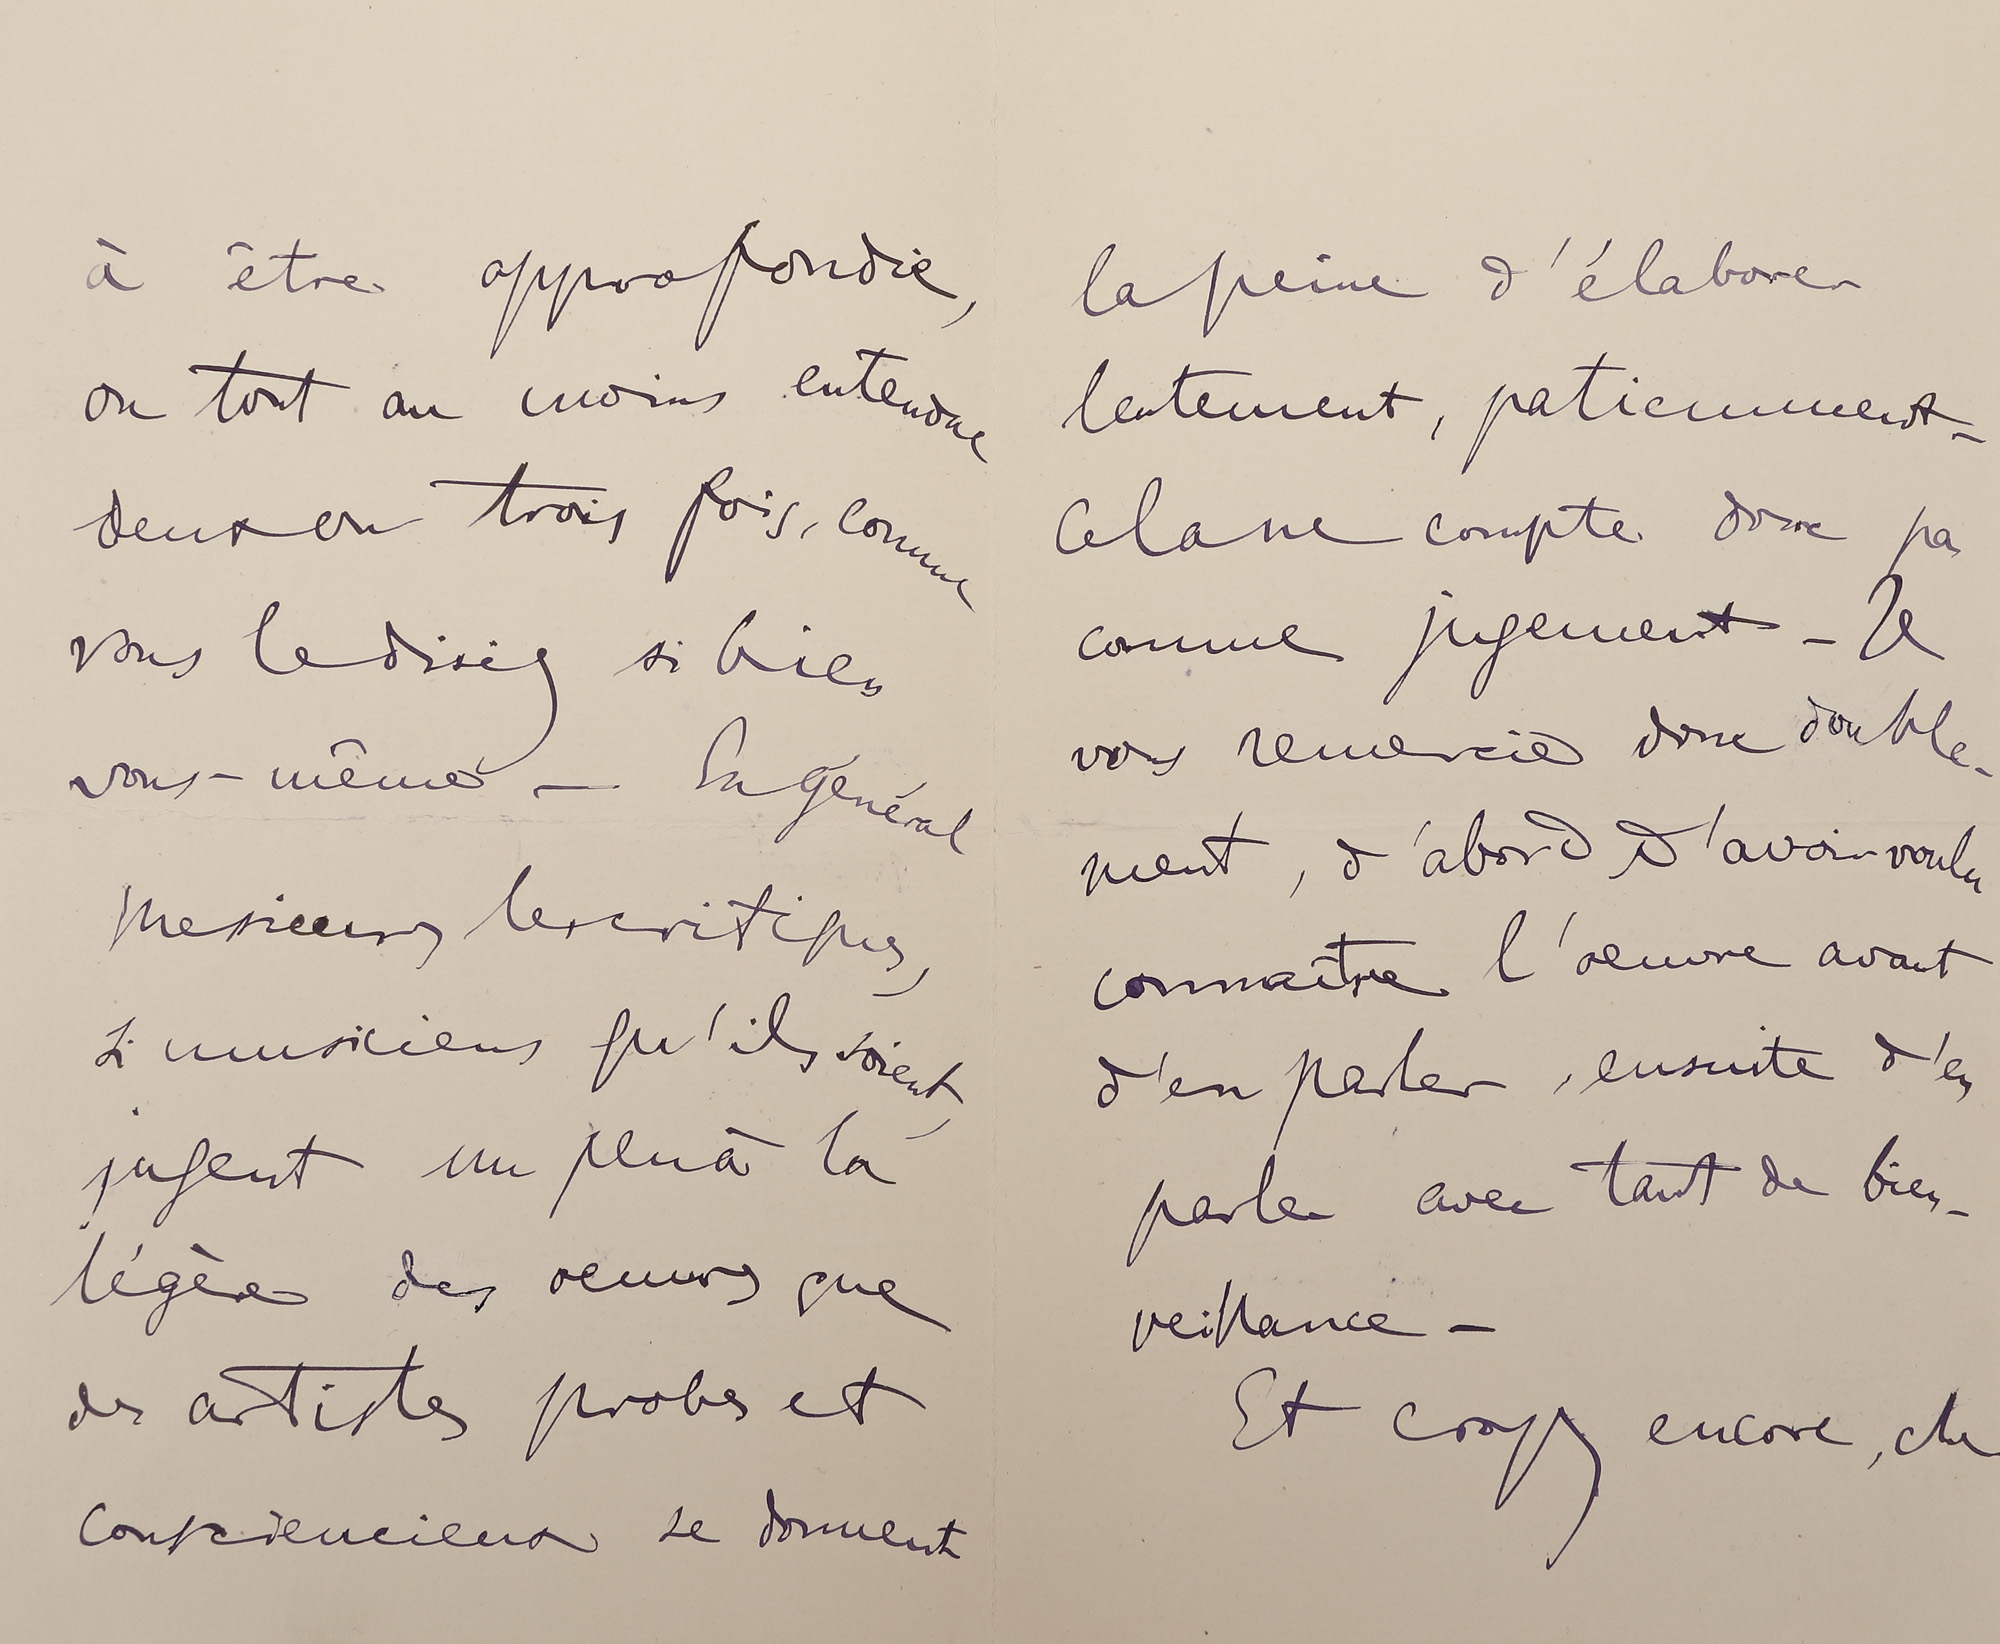 à être approfondie,
ou tout au moins entendue
deux ou trois fois, comme
vous le disiez si bien
vous-même — En général
Messieurs les critiques,
si musiciens qu'ils soient,
jugent un peu à la
légère des oeuvres que
des artistes probes et
consciencieux se donnent
la peine d'élaborer
lentement, patiemment -
Cela ne compte donc pas
comme jugement - Je
vous remercie donc double-
ment, d'abord d'avoir voulu
connaître l'oeuvre avant
d'en parler, ensuite d'en
parler avec tant de bien-
veillance —
Et croyez encore, cher